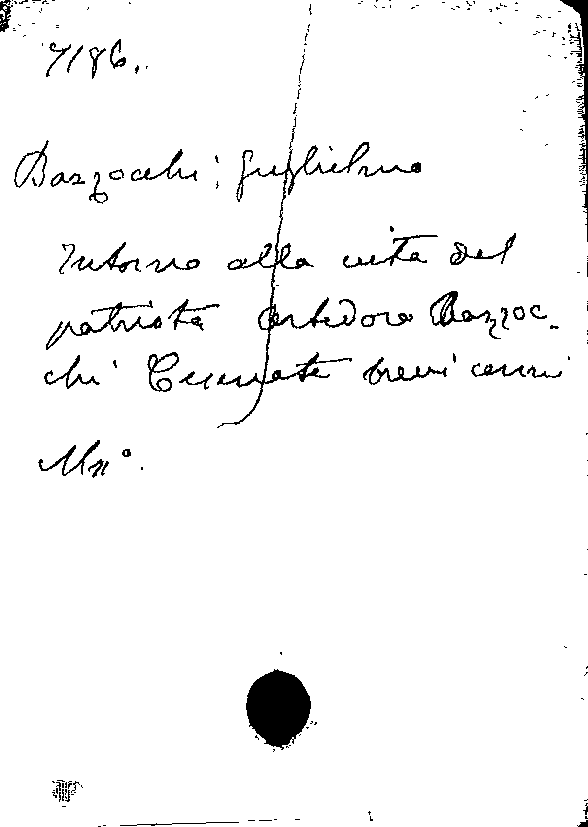 7186.
Bazzocchi; Guglielmo
Intorno alla vita del
patriota Artidoro Bazzoc-
chi Cesenate brevi cenni
Ms°.